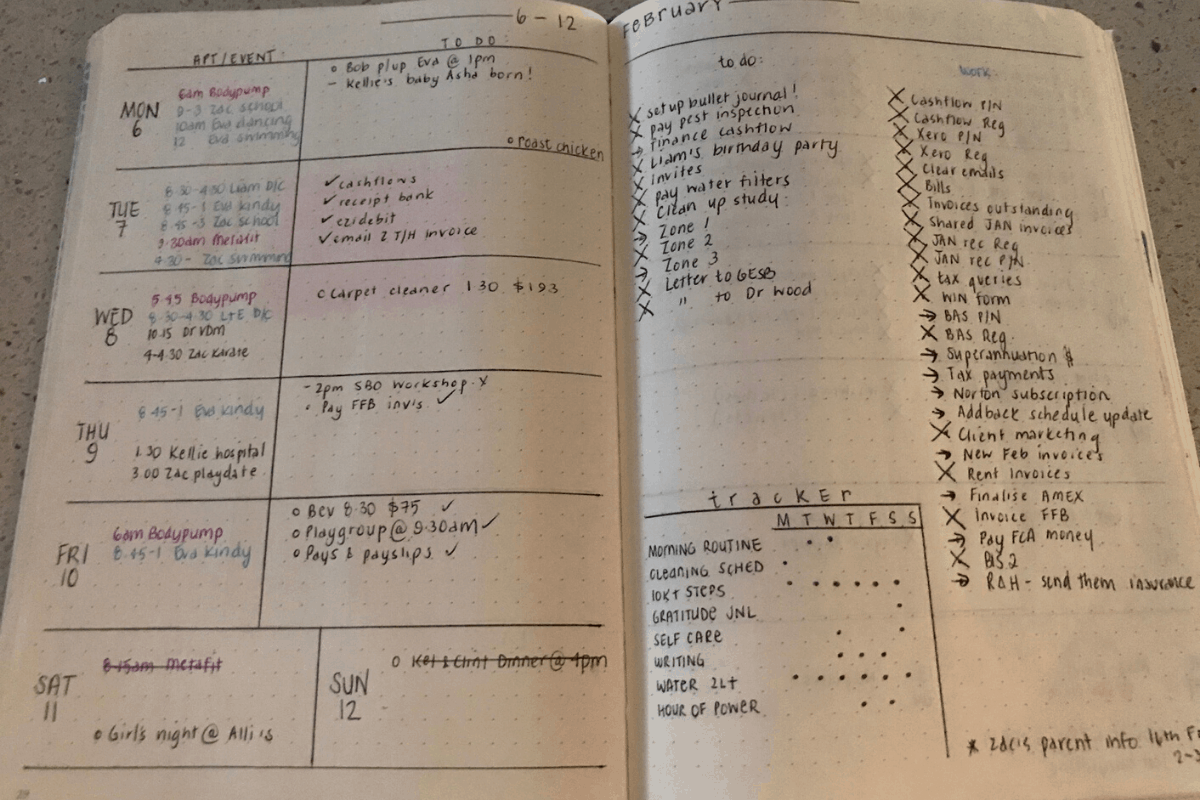 6 - 12
APT/EVENT:
TO DO:
MON
6
6am Bodypump
9-3 Zac school
10am Eva dancing
12 Eva swimming
o Bob p/up Eva @ 1pm
- Kellie's baby Asha born!
o roast chicken
TUE
7
8.30-4.30 Liam D/C
8.45-1 Eva kindy
8.45-3 Zac school
9.30am Metafit
4.30- Zac swimming
✓ cashflows
✓ receipt bank
✓ ezidebit
✓ email 2 T/H invoice
WED
8
5.45 Bodypump
8.30-4.30 L+E D/C
10.15 Dr VDM
4-4.30 Zac Karate
o Carpet cleaner 1.30 $193
THU
9
8.45-1 Eva kindy
1.30 Kellie hospital
3.00 Zac playdate
- 2pm SBO Workshop X
o Pay FFB invs ✓
FRI
10
6am Bodypump
8.45-1 Eva kindy
o Bev 8.30 $75 ✓
o Playgroup @ 9.30am ✓
o Pays & payslips ✓
SAT
11
8.15am Metafit
o Girl's night @ Alli's
SUN
12
o Kel & Clint Dinner @ 4pm
FEBRUARY
to do:
X set up bullet journal!
X pay pest inspection
→ finance cashflow
X Liam's birthday party
X invites
X pay water filters
X Clean up study:
→ Zone 1
X Zone 2
→ Zone 3
X Letter to GESB
X " to Dr Wood
WORK:
X Cashflow P/N
X Cashflow Reg
X Xero P/N
X Xero Reg
X Clear emails
X Bills
X Invoices outstanding
X Shared JAN invoices
X JAN rec Reg
X JAN rec P/N
X tax queries
X WIN form
→ BAS P/N
X BAS Reg
→ Superannuation $
→ Tax payments
→ Norton subscription
→ Addback schedule update
X Client marketing
→ New Feb invoices
X Rent Invoices
→ Finalise AMEX
X Invoice FFB
→ Pay FCA money
X
→ R&H - send them insurance
tracker
M T W T F S S
MORNING ROUTINE
CLEANING SCHED
10KT STEPS
GRATITUDE JNL
SELF CARE
WRITING
WATER 2LT
HOUR OF POWER
* Zac's parent info 16th